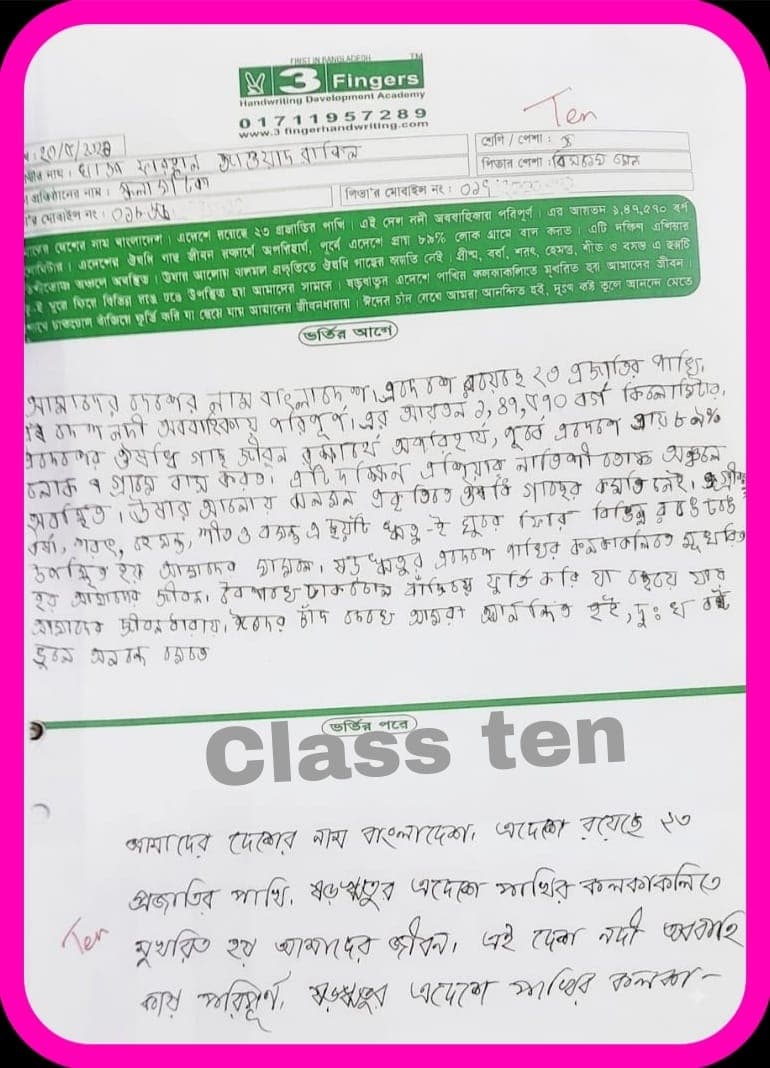 FIRST IN BANGLADESH
TM
3 Fingers
Handwriting Development Academy
01711957289
www.3 fingerhandwriting.com
Ten
শ্রেণি / পেশা :
পিতার পেশা :
পিতা'র মোবাইল নং : ০১৭
দেশের নাম বাংলাদেশ। এদেশে রয়েছে ২৩ প্রজাতির পাখি। এই দেশ নদী অববাহিকায় পরিপূর্ণ। এর আয়তন ১,৪৭,৫৭০ বর্গ
এদেশের ঔষধি গাছ জীবন রক্ষার্থে অপরিহার্য, পূর্বে এদেশে প্রায় ৮৯% লোক গ্রামে বাস করত। এটি দক্ষিণ এশিয়ার
অঞ্চলে অবস্থিত। উষার আলোয় ঝলমল প্রকৃতিতে ঔষধি গাছের কমতি নেই। গ্রীষ্ম, বর্ষা, শরৎ, হেমন্ত, শীত ও বসন্ত এ ছয়টি
ঘুরে ফিরে বিভিন্ন রঙে ঢঙে উপস্থিত হয় আমাদের সামনে। ষড়ঋতুর এদেশে পাখির কলকাকলিতে মুখরিত হয় আমাদের জীবন।
ঢাকঢোল বাজিয়ে ফুর্তি করি যা ছেয়ে যায় আমাদের জীবনধারায়। ঈদের চাঁদ দেখে আমরা আনন্দিত হই, দুঃখ কষ্ট ভুলে আনন্দে মেতে
ভর্তির আগে
আমাদের দেশের নাম বাংলাদেশ। এদেশে রয়েছে ২৩ প্রজাতির পাখি,
এই দেশ নদী অববাহিকায় পরিপূর্ণ। এর আয়তন ১,৪৭,৫৭০ বর্গ কিলোমিটার,
এদেশের ঔষধি গাছ জীবন রক্ষার্থে অপরিহার্য, পূর্বে এদেশে প্রায় ৮৯%
লোক গ্রামে বাস করত। এটি দক্ষিণ এশিয়ার নাতিশীতোষ্ণ অঞ্চলে
অবস্থিত। উষার আলোয় ঝলমল প্রকৃতিতে ঔষধি গাছের কমতি নেই। গ্রীষ্ম
বর্ষা, শরৎ, হেমন্ত, শীত ও বসন্ত এ ছয়টি ঋতু-ই ঘুরে ফিরে বিভিন্ন রঙে ঢঙে
উপস্থিত হয় আমাদের সামনে। ষড়ঋতুর এদেশে পাখির কলকাকলিতে মুখরিত
হয় আমাদের জীবন। বৈশাখে ঢাকঢোল বাঁজিয়ে ফুর্তি করি যা ছেয়ে যায়
আমাদের জীবনধারায়। ঈদের চাঁদ দেখে আমরা আনন্দিত হই, দুঃখ কষ্ট
ভুলে আনন্দে মেতে
ভর্তির পরে
Class ten
আমাদের দেশের নাম বাংলাদেশ। এদেশে রয়েছে ২৩
প্রজাতির পাখি। ষড়ঋতুর এদেশে পাখির কলকাকলিতে
Ten মুখরিত হয় আমাদের জীবন। এই দেশ নদী অববাহি
কায় পরিপূর্ণ। ষড়ঋতুর এদেশে পাখির কলকা-